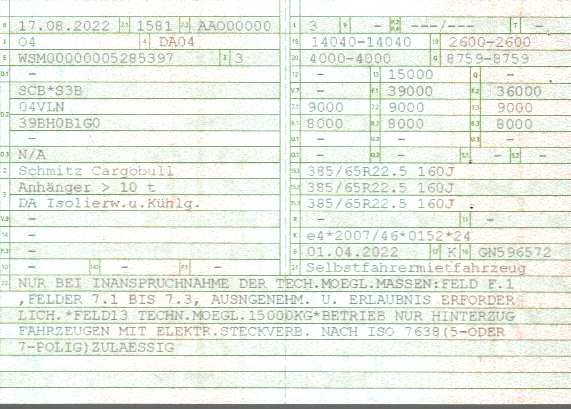 17.08.2022 1581 AAO00000
04 DA04
WSM00000005285397 3
-
SCB*S3B
04VLN
39BH0B1G0
-
N/A
Schmitz Cargobull
Anhänger > 10 t
DA Isolierw.u.Kühlg.
-
-
- - -
3 - ---/--- -
14040-14040 2600-2600
4000-4000 8759-8759
- 15000 -
- 39000 36000
9000 9000 9000
8000 8000 8000
- - -
- - - -
385/65R22.5 160J
385/65R22.5 160J
385/65R22.5 160J
- -
e4*2007/46*0152*24
01.04.2022 K GN596572
Selbstfahrermietfahrzeug
NUR BEI INANSPRUCHNAHME DER TECH.MOEGL.MASSEN:FELD F.1
,FELDER 7.1 BIS 7.3, AUSNGENEHM. U. ERLAUBNIS ERFORDER
LICH.*FELD13 TECHN.MOEGL.15000KG*BETRIEB NUR HINTERZUG
FAHRZEUGEN MIT ELEKTR.STECKVERB. NACH ISO 7638(5-ODER
7-POLIG)ZULAESSIG